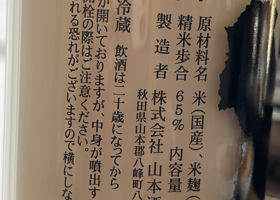 原材料名 米(国産)、米麹(
精米歩合 65% 内容量
製造者 株式会社 山本酒
秋田県山本郡八峰町八
冷蔵 飲酒は二十歳になってから
が開いておりますが、中身が噴出す
開栓の際はご注意ください。
れる恐れがございますので横にしな